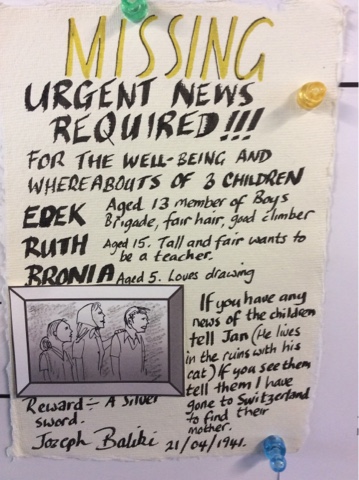 MISSING
URGENT NEWS
REQUIRED!!!
FOR THE WELL-BEING AND
WHEREABOUTS OF 3 CHILDREN
EDEK Aged 13 member of Boys
Brigade, fair hair, good climber
RUTH Aged 15. Tall and fair wants to
be a teacher.
BRONIA Aged 5. Loves drawing
If you have any
news of the children
tell Jan (He lives
in the ruins with his
cat) If you see them
tell them I have
gone to Switzerland
to find their
mother.
Reward:- A silver
sword.
Joseph Baliki 21/04/1941.